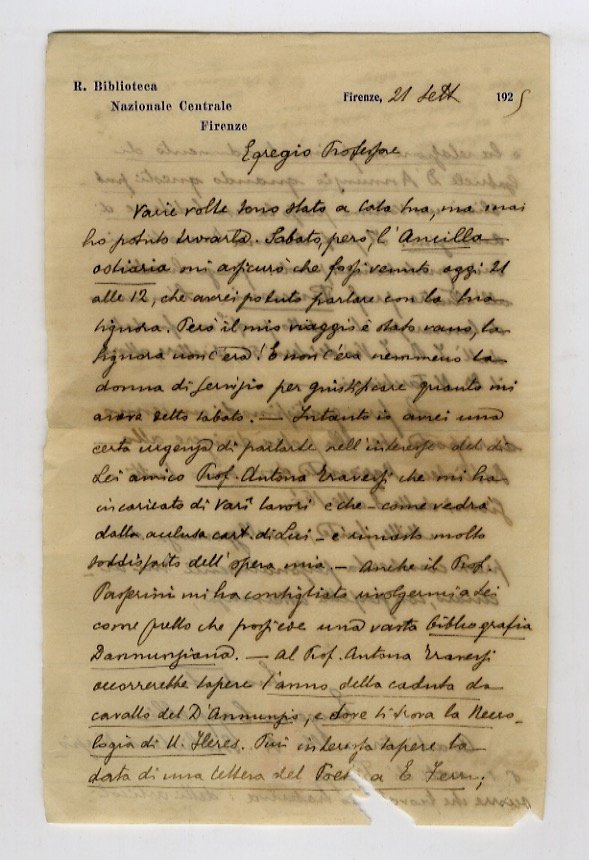 R. Biblioteca
Nazionale Centrale
Firenze
Firenze, 21 Sett 1925
Egregio Professore
Varie volte sono stato a casa sua, ma mai
ho potuto trovarla. Sabato, però, l'Ancilla
ostiaria mi assicurò che fossi venuto oggi 21
alle 12, che avrei potuto parlare con la sua
signora. Però il mio viaggio è stato vano, la
signora non c'era! E non c'era nemmeno la
donna di servizio per giustificare quanto mi
aveva detto sabato. — Intanto io avrei una
certa urgenza di parlarle nell'interesse del di
Lei amico Prof. Antona Traversi che mi ha
incaricato di varî lavori e che - come vedrà
dalla acclusa cart. di Lui - è rimasto molto
soddisfatto dell'opera mia. — Anche il Prof.
Passerini mi ha consigliato rivolgermi a Lei
come quello che possiede una vasta bibliografia
Dannunziana. — Al Prof. Antona Traversi
occorrerebbe sapere l'anno della caduta da
cavallo del D'Annunzio, e dove si trova la Necro-
logia di U. Fleres. Più interessa sapere la
data di una lettera del Poeta a E.